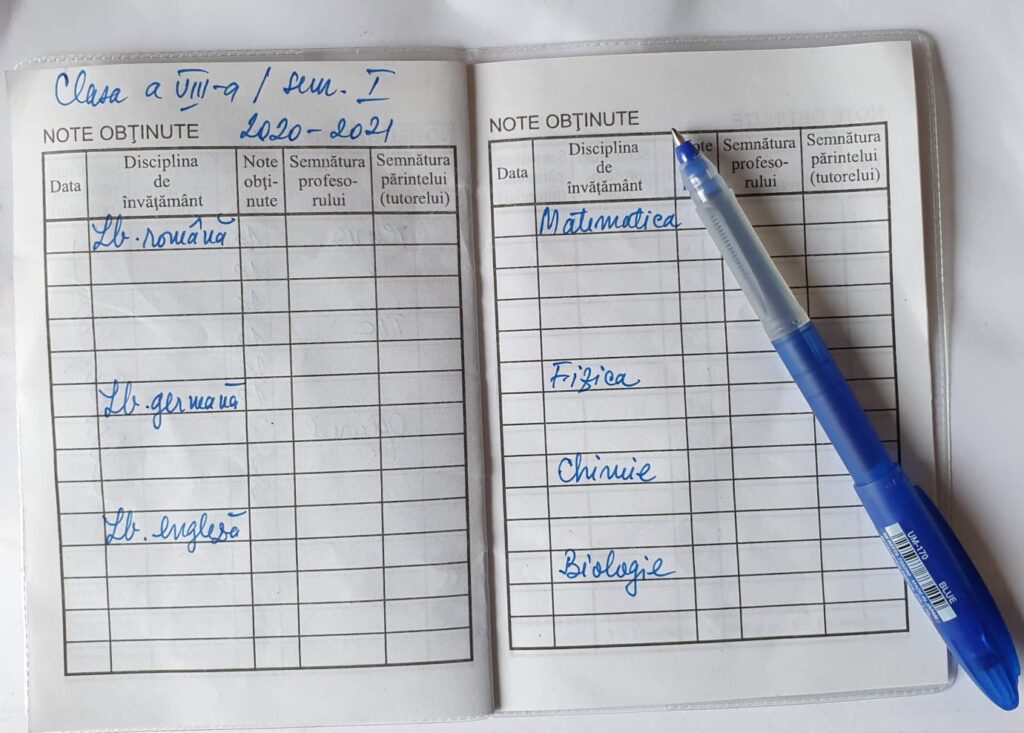 Clasa a VIII-a / sem. I
NOTE OBŢINUTE 2020-2021
Data
Disciplina
de
învăţământ
Note
obţi-
nute
Semnătura
profeso-
rului
Semnătura
părintelui
(tutorelui)
Lb. română
Lb. germană
Lb. engleză
NOTE OBŢINUTE
Data
Disciplina
de
învăţământ
Note
Semnătura
profeso-
rului
Semnătura
părintelui
(tutorelui)
Matematica
Fizica
Chimie
Biologie
UM-170
BLUE